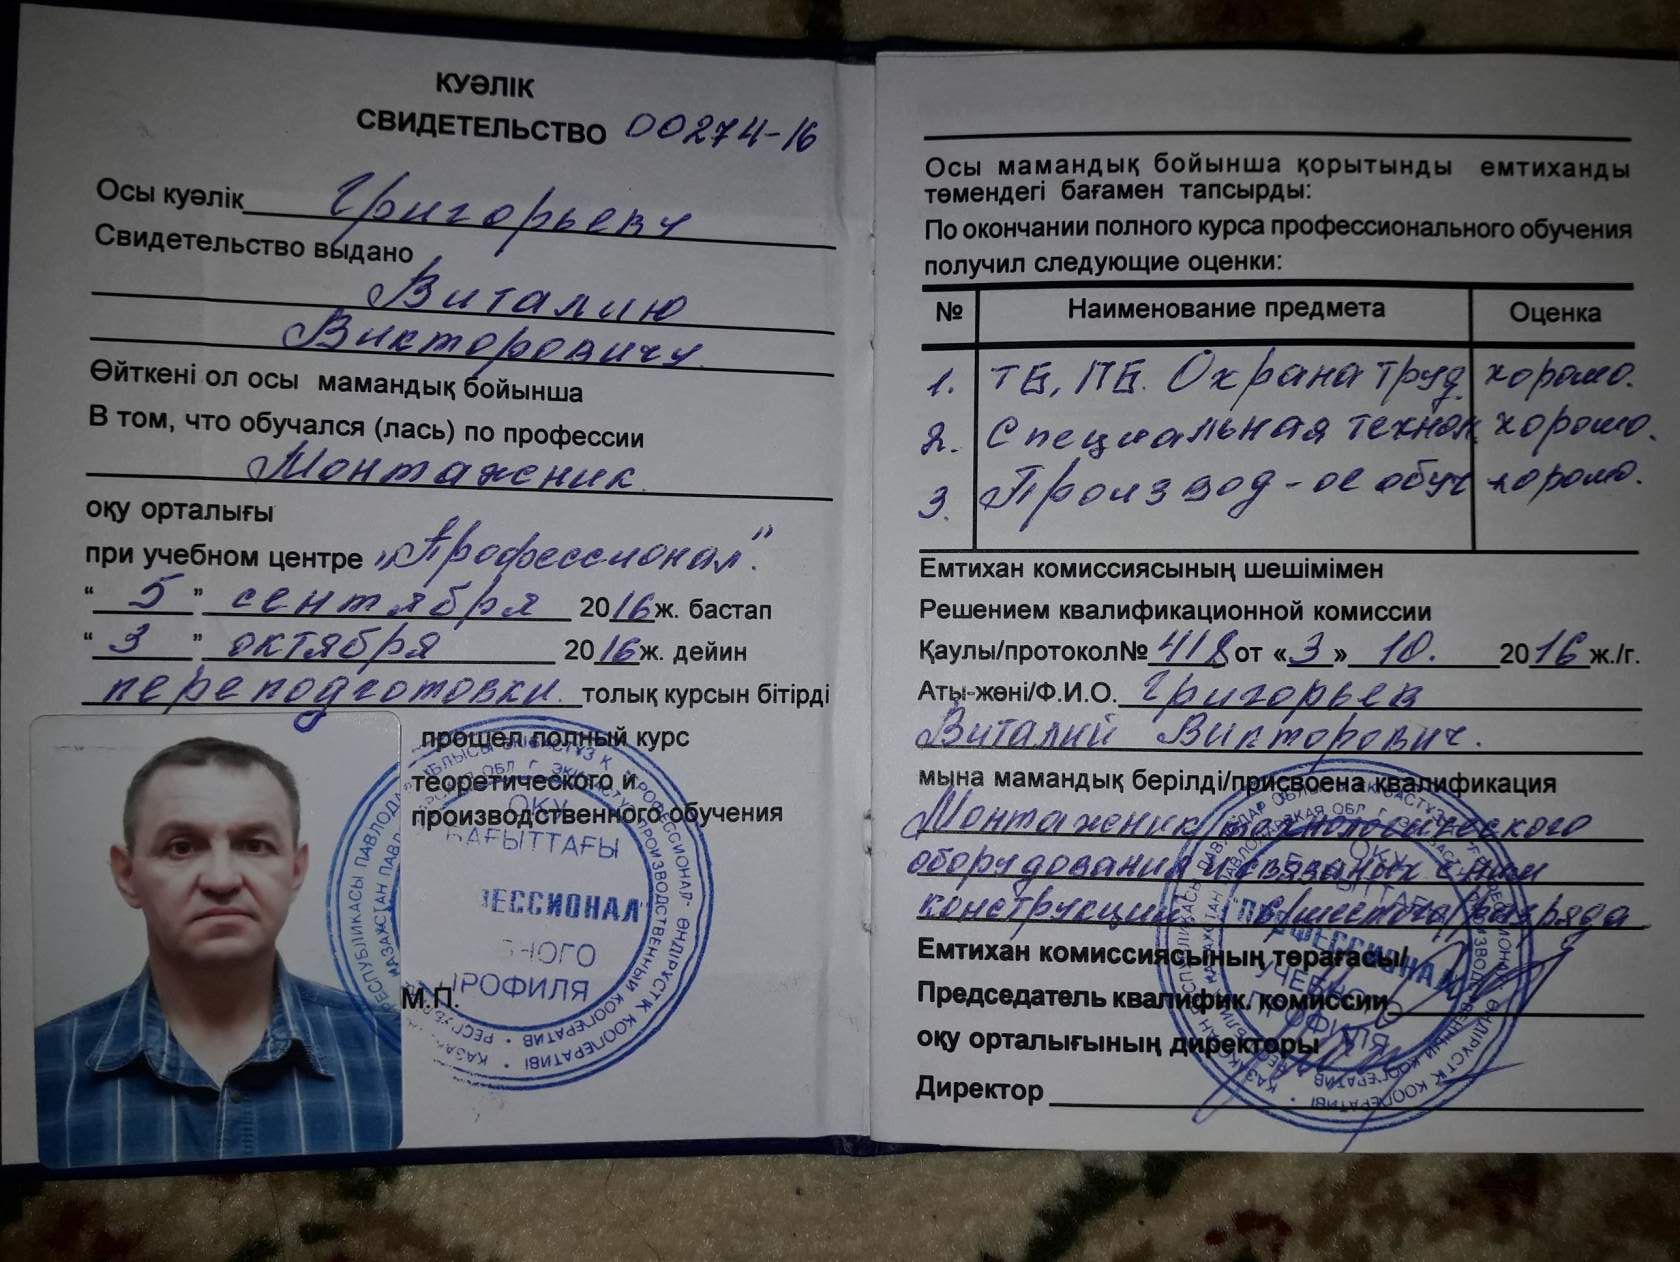 КУӘЛІК
СВИДЕТЕЛЬСТВО 00274-16
Осы куәлік Григорьеву
Свидетельство выдано
Виталию
Викторовичу.
Өйткені ол осы мамандық бойынша
В том, что обучался (лась) по профессии
Монтажник.
оқу орталығы
при учебном центре „Профессионал".
“ 5 ” сентября 2016 ж. бастап
“ 3 ” октября 2016 ж. дейин
переподготовки. толық курсын бітірді
прошел полный курс
теоретического и
производственного обучения
ОҚУ
БАҒЫТТАҒЫ
ЕССИОНАЛ
НОГО
ПРОФИЛЯ
М.П.
Осы мамандық бойынша қорытынды емтиханды
төмендегі бағамен тапсырды:
По окончании полного курса профессионального обучения
получил следующие оценки:
№ Наименование предмета Оценка
1. ТБ, ПБ. Охрана труд. хорошо.
2. Специальная технол. хорошо.
3. Производ-ое обуч хорошо.
Емтихан комиссиясының шешімімен
Решением квалификационной комиссии
Қаулы/протокол№ 418 от «3» 10. 2016 ж./г.
Аты-жөні/Ф.И.О. Григорьев
Виталий Викторович.
мына мамандық берілді/присвоена квалификация
Монтажник технологического
оборудования и связаных с ним
конструкции 6/шестого/разряда
Емтихан комиссиясының төрағасы/
Председатель квалифик. комиссии
оқу орталығының директоры
Директор
ПРОФЕССИОНАЛ
УЧЕБНОГО
ПРОФИЛЯ